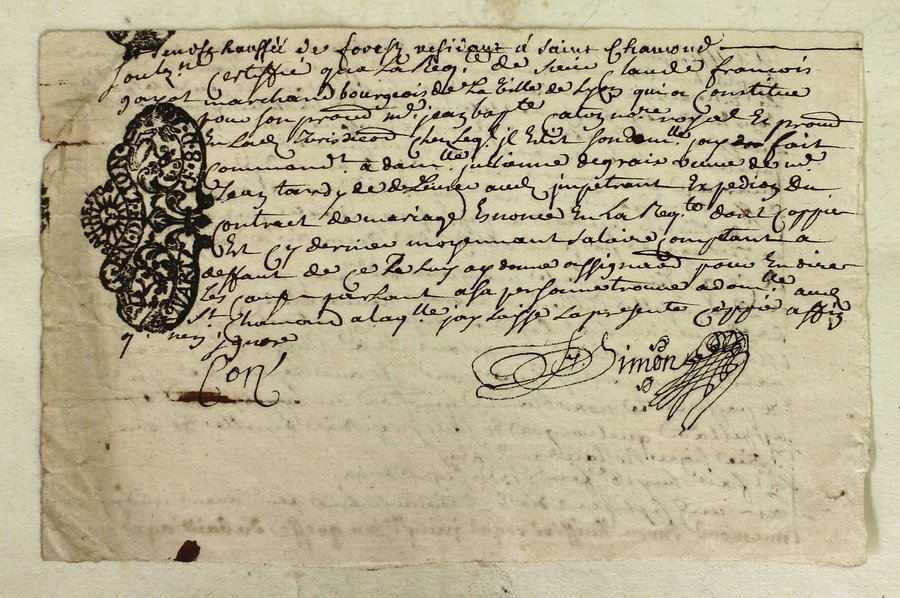 et senesehaussée de forest residant á saint Chamond
soub.ne Certiffié qua La Req.te de sieur claude françois
gayot marchand bourgeois de La Ville de Lyon qui a Constitué
pour son procur m.r jean bapt.e notaire royal Et procur
En Lad Jurisdiction Chez Leq.l jl Elit son dom.lle jay fait
Commandem.t á dam.lle julianne degraix veuve de m.r
Jean tardy de aud jmpetrant Expedion du
Contract de mariage Enoncé En La Req.te dont Coppie
Est Cy derriere moyennant salaire Comptant a
deffaut de Ce Je Luy ay donné assignaon pour En dire
Les Causes parlant a sa personne trouvée a domi.lle aud
S.t Chamond a laq.lle jay Laissé La presente Coppie affin
q. nen jgnore
Con.e Simon